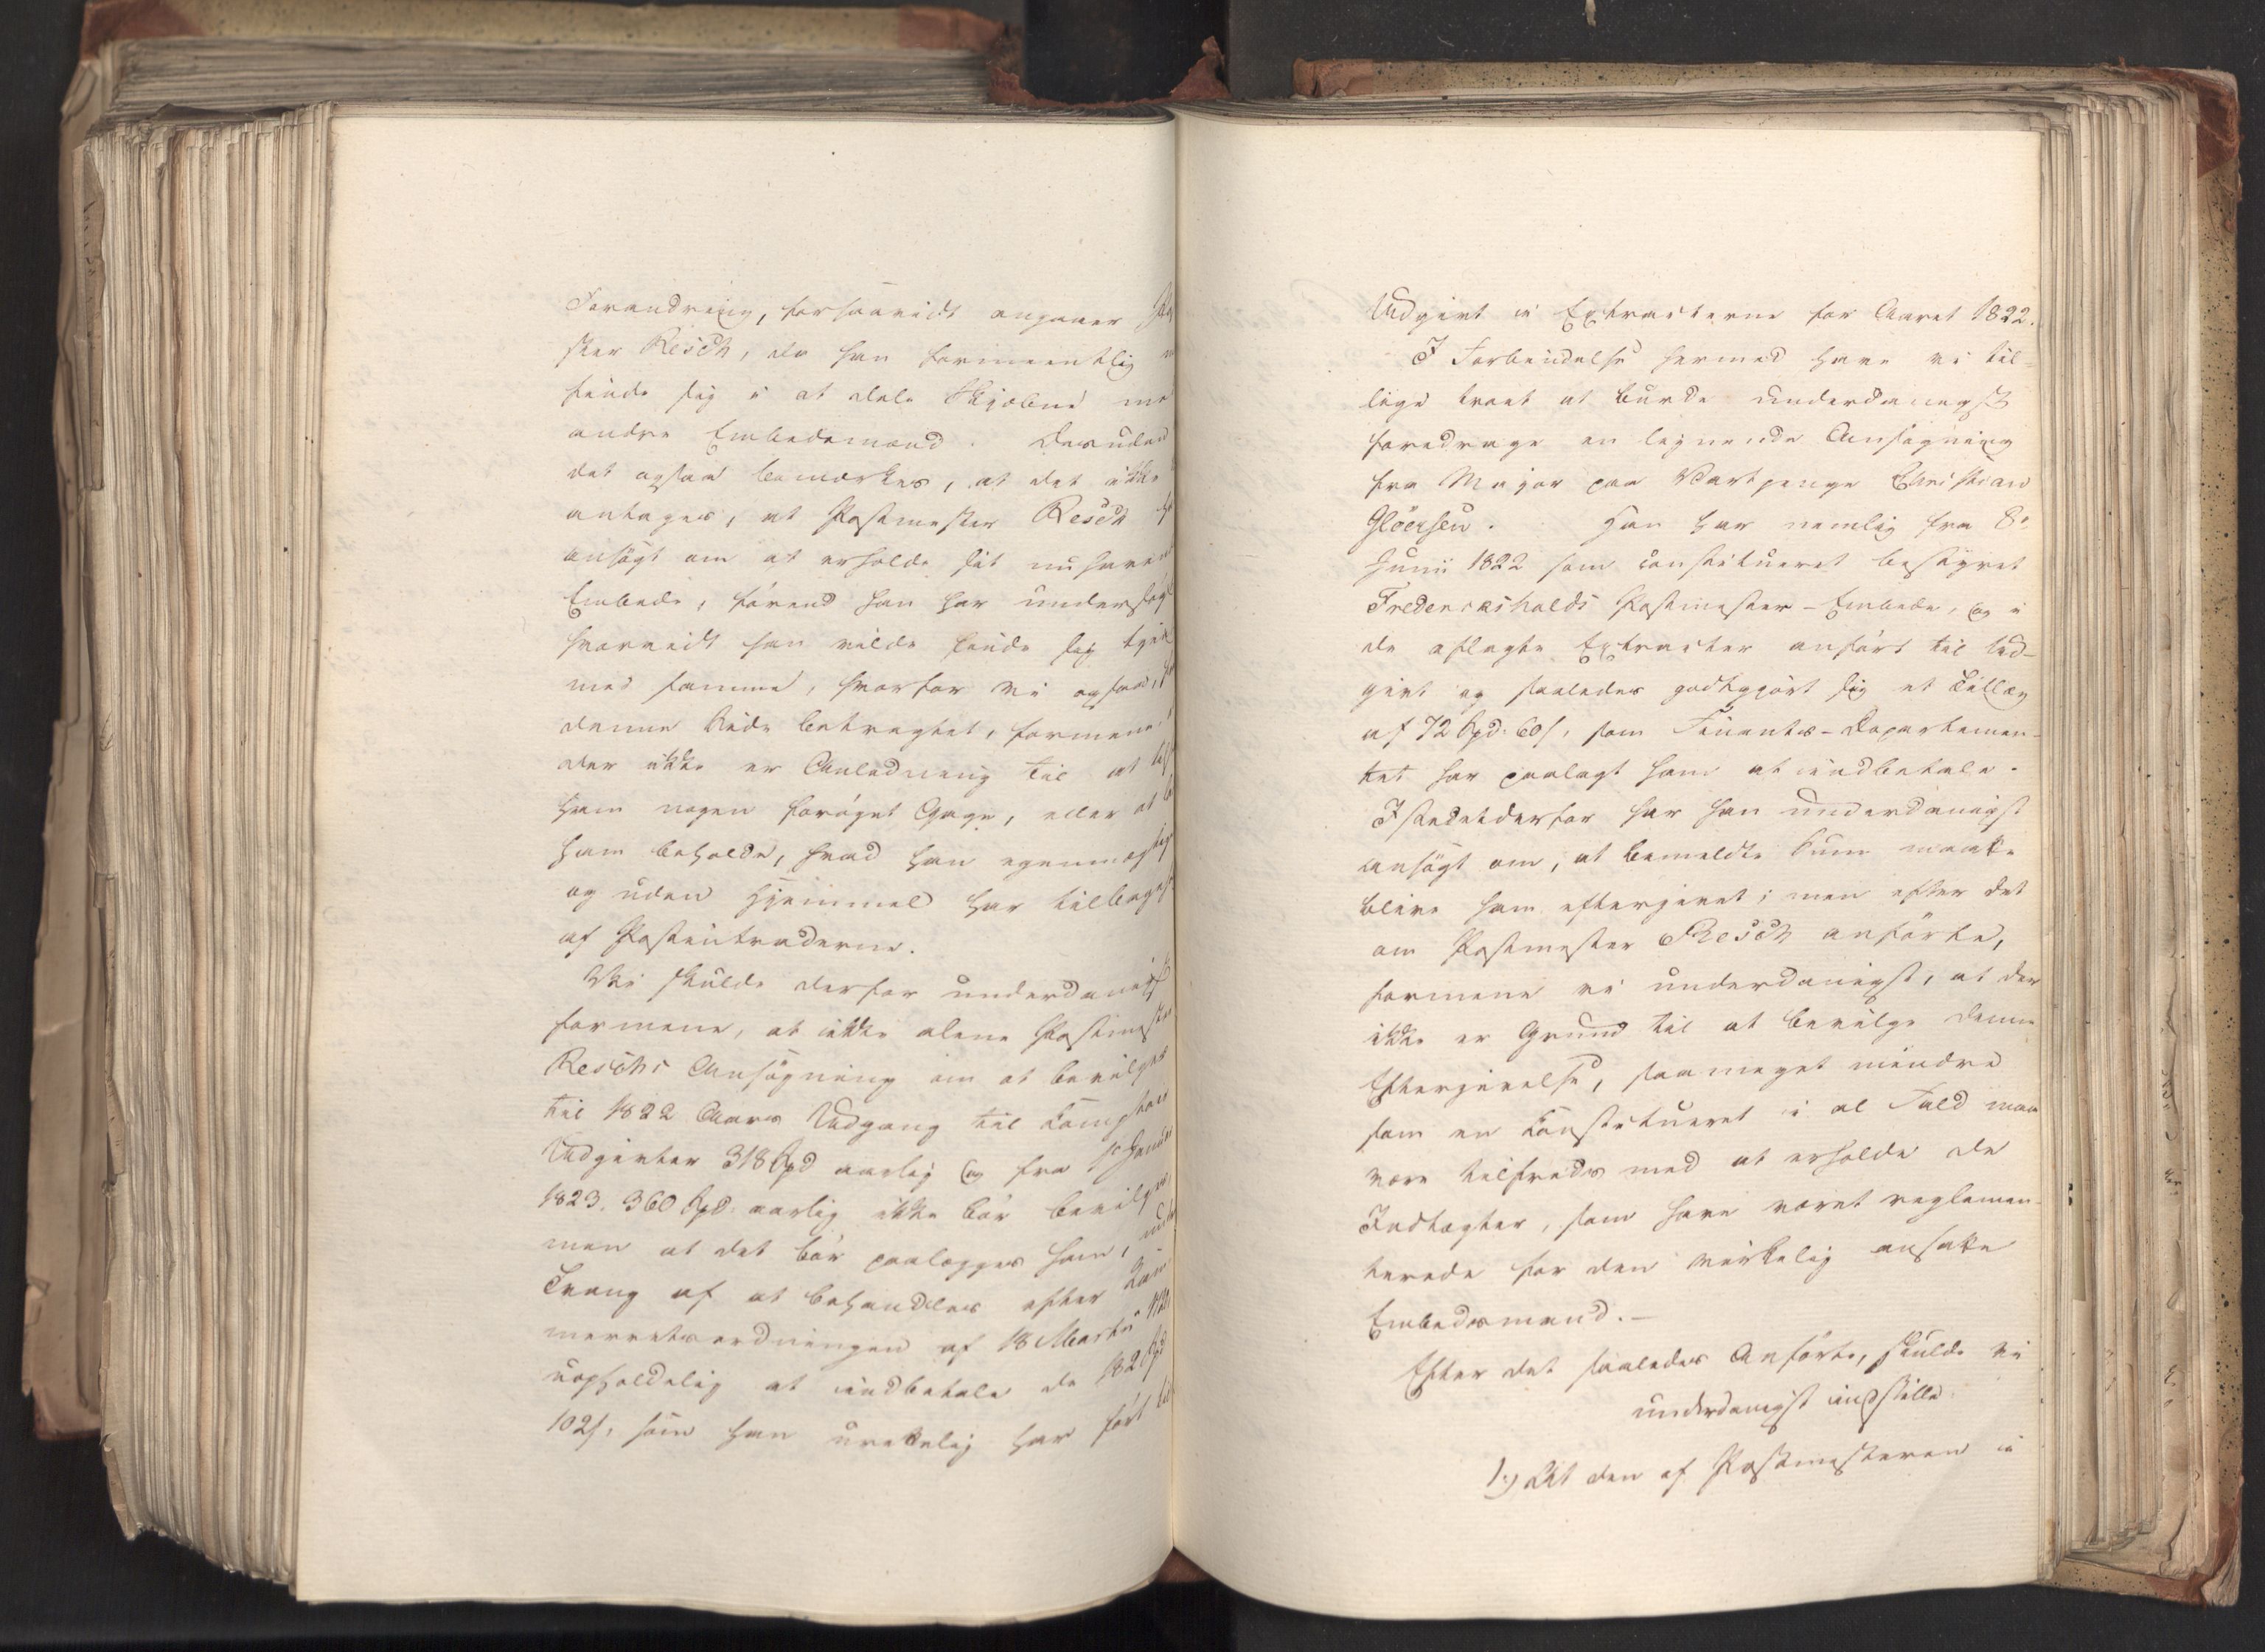 Forandring, forsaavidt angaaer
ster Resch, da han formeentlig
finde sig i at dele Skjæbne
andre Embedsmænd. Desuden
det ogsaa bemærkes, at det ikke
antages, at Postmester Resch
ansøgt om at erholde sit nuhavend
Embede, førend han har undersøgt
hvorvidt han vilde kunde sig
med samme, hvorfor vi ogsaa,
denne Side betragtet, formene
der ikke er Anledning til at
ham nogen forøget Gage, eller at
ham beholde, hvad han egenmægtig
og uden Hjemmel har tilbageh
af Postintraderne.
Vi skulde derfor underdanigst
formene, at ikke alene Postmester
Reschs Ansøgning om at bevilges
til 1822 Aars Udgang til Comptoir
Udgivter 318 Spd aarlig og fra 1ste Januar
1823. 360 Spd: aarlig ikke bør bevilges
men at det bør paalægges ham, under
Tvang af at behandles efter Læn
merretsordningen af 18 Martii
uopholdelig at indbetale de 182 Spd
102 s, som han urettelig har ført til
Udgivt i Extracterne for Aaret 1822.
I Forbindelse hermed have vi til-
lige troet at burde underdanigst
foredrage en lignende Ansøgning
fra Major paa Vartpenge Christian
Glöersen. Han har nemlig fra 8de
Junii 1822 som constitueret bestyret
Fredericshalds Postmester-Embede, og i
de aflagte Extracter anført til Ud-
givt og saaledes godtgjort sig et Tillæg
af 72 Spd: 60 s, som Finants-Departemen-
tet har paalagt ham at indbetale.
Istedetderfor har han underdanigst
ansøgt om, at bemeldte Sum maatte
blive ham eftergivet; men efter det
om Postmester Resch anførte,
formene vi underdanigst, at der
ikke er Grund til at bevilge denne
Eftergivelse, saameget mindre
som en Constitueret i al Fald maa
være tilfreds med at erholde de
Indtægter, som have været reglemen-
terede for den virkelig ansatte
Embedsmand.—
Efter det saaledes Anførte, skulde vi
underdanigst indstille:
1.) At den af Postmesteren i